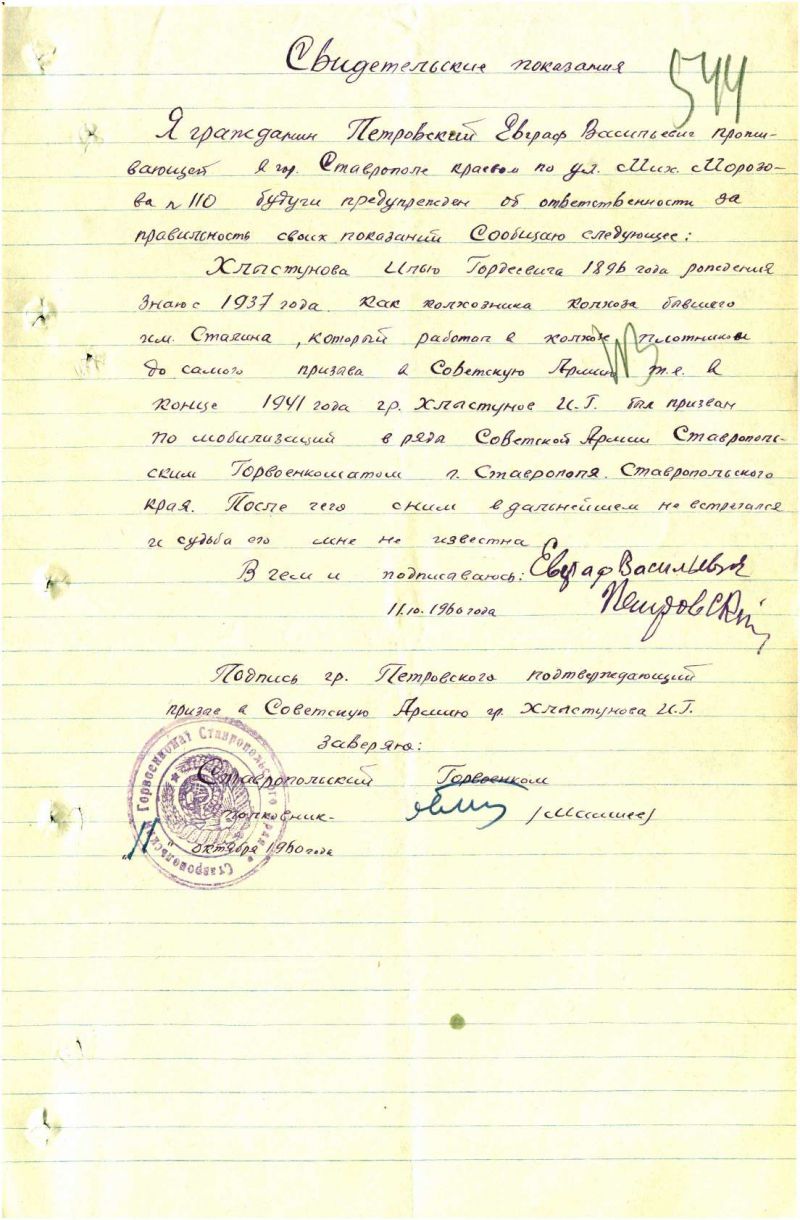 Свидетельские показания
544
Я гражданин Петровский Евграф Васильевич прожи-
вающей в гор. Ставрополе краевом по ул. Мих. Морозо-
ва №110 будучи предупрежден об ответственности за
правильность своих показаний Сообщаю следующее:
Хлыстунова Илью Гордеевича 1896 года рождения
знаю с 1937 года. как колхозника колхоза бывшего
им. Сталина, который работал в колхозе плотником
до самого призава в Советскую Армию т.е. в
конце 1941 года гр. Хлыстунов И.Г. был призван
по мобилизаций в ряда Советской Армии Ставрополь-
ским Горвоенкоматом г. Ставрополя. Ставропольского
края. После чего сним в дальнейшем не встречался
и судьба его мне не известна
В чем и подписаваюсь: Евграф Васильевич
Петровский
11.10.1960 года
Подпись гр. Петровского подтверждающий
призав в Советскую Армию гр. Хлыстунова И.Г.
Заверяю:
Ставропольский Горвоенком
полковник-
"11" октября 1960 года
Горвоенкомат Ставропольского края